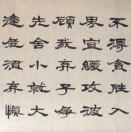 不得貪勝入
界宜緩攻彼
顧我棄子爭
先舍小就大
逢危須棄慎